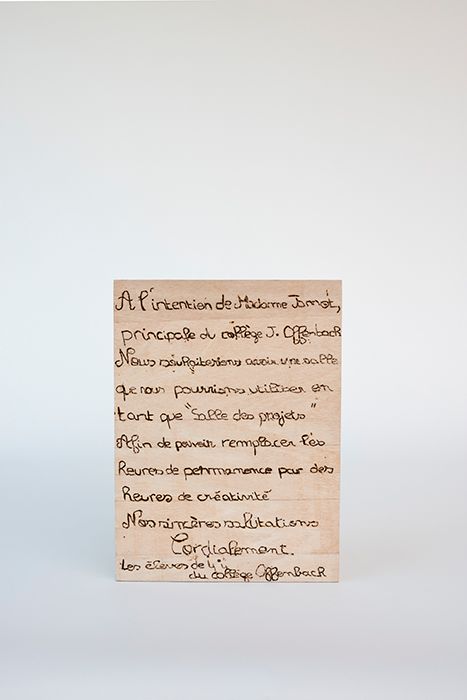 A l'intention de Madame Jamet,
principale du collège J. Offenbach
Nous souhaiterions avoir une salle
que nous pourrions utiliser en
tant que "Salle des projets"
Afin de pouvoir remplacer les
heures de permanence par des
heures de créativité
Nos sincères salutations
Cordialement.
Les élèves de 4
du collège Offenbach